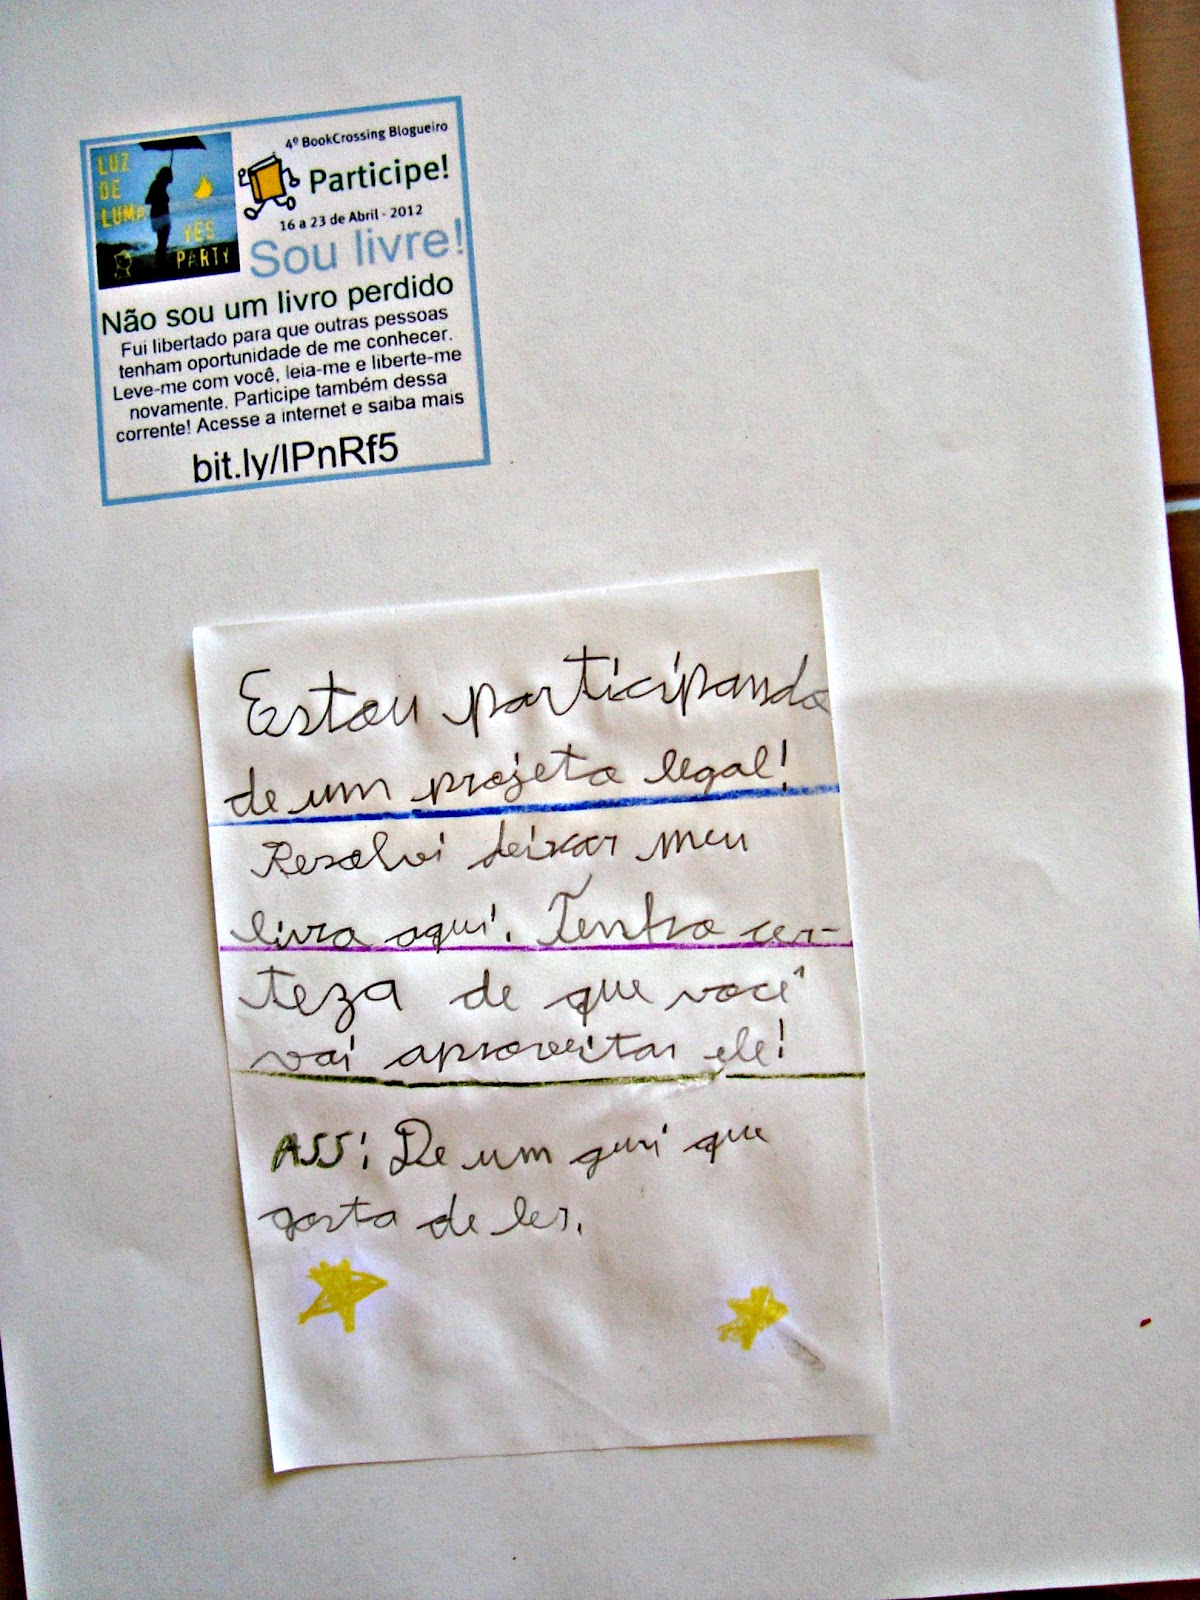 4º BookCrossing Blogueiro
LUZ
DE
LUMA
YES
PARTY
Participe!
16 a 23 de Abril - 2012
Sou livre!
Não sou um livro perdido
Fui libertado para que outras pessoas
tenham oportunidade de me conhecer.
Leve-me com você, leia-me e liberte-me
novamente. Participe também dessa
corrente! Acesse a internet e saiba mais
bit.ly/IPnRf5
Estou participando
de um projeto legal!
Resolvi deixar meu
livro aqui. Tenho cer-
teza de que você
vai aproveitar ele!
ASS: De um guri que
gosta de ler.